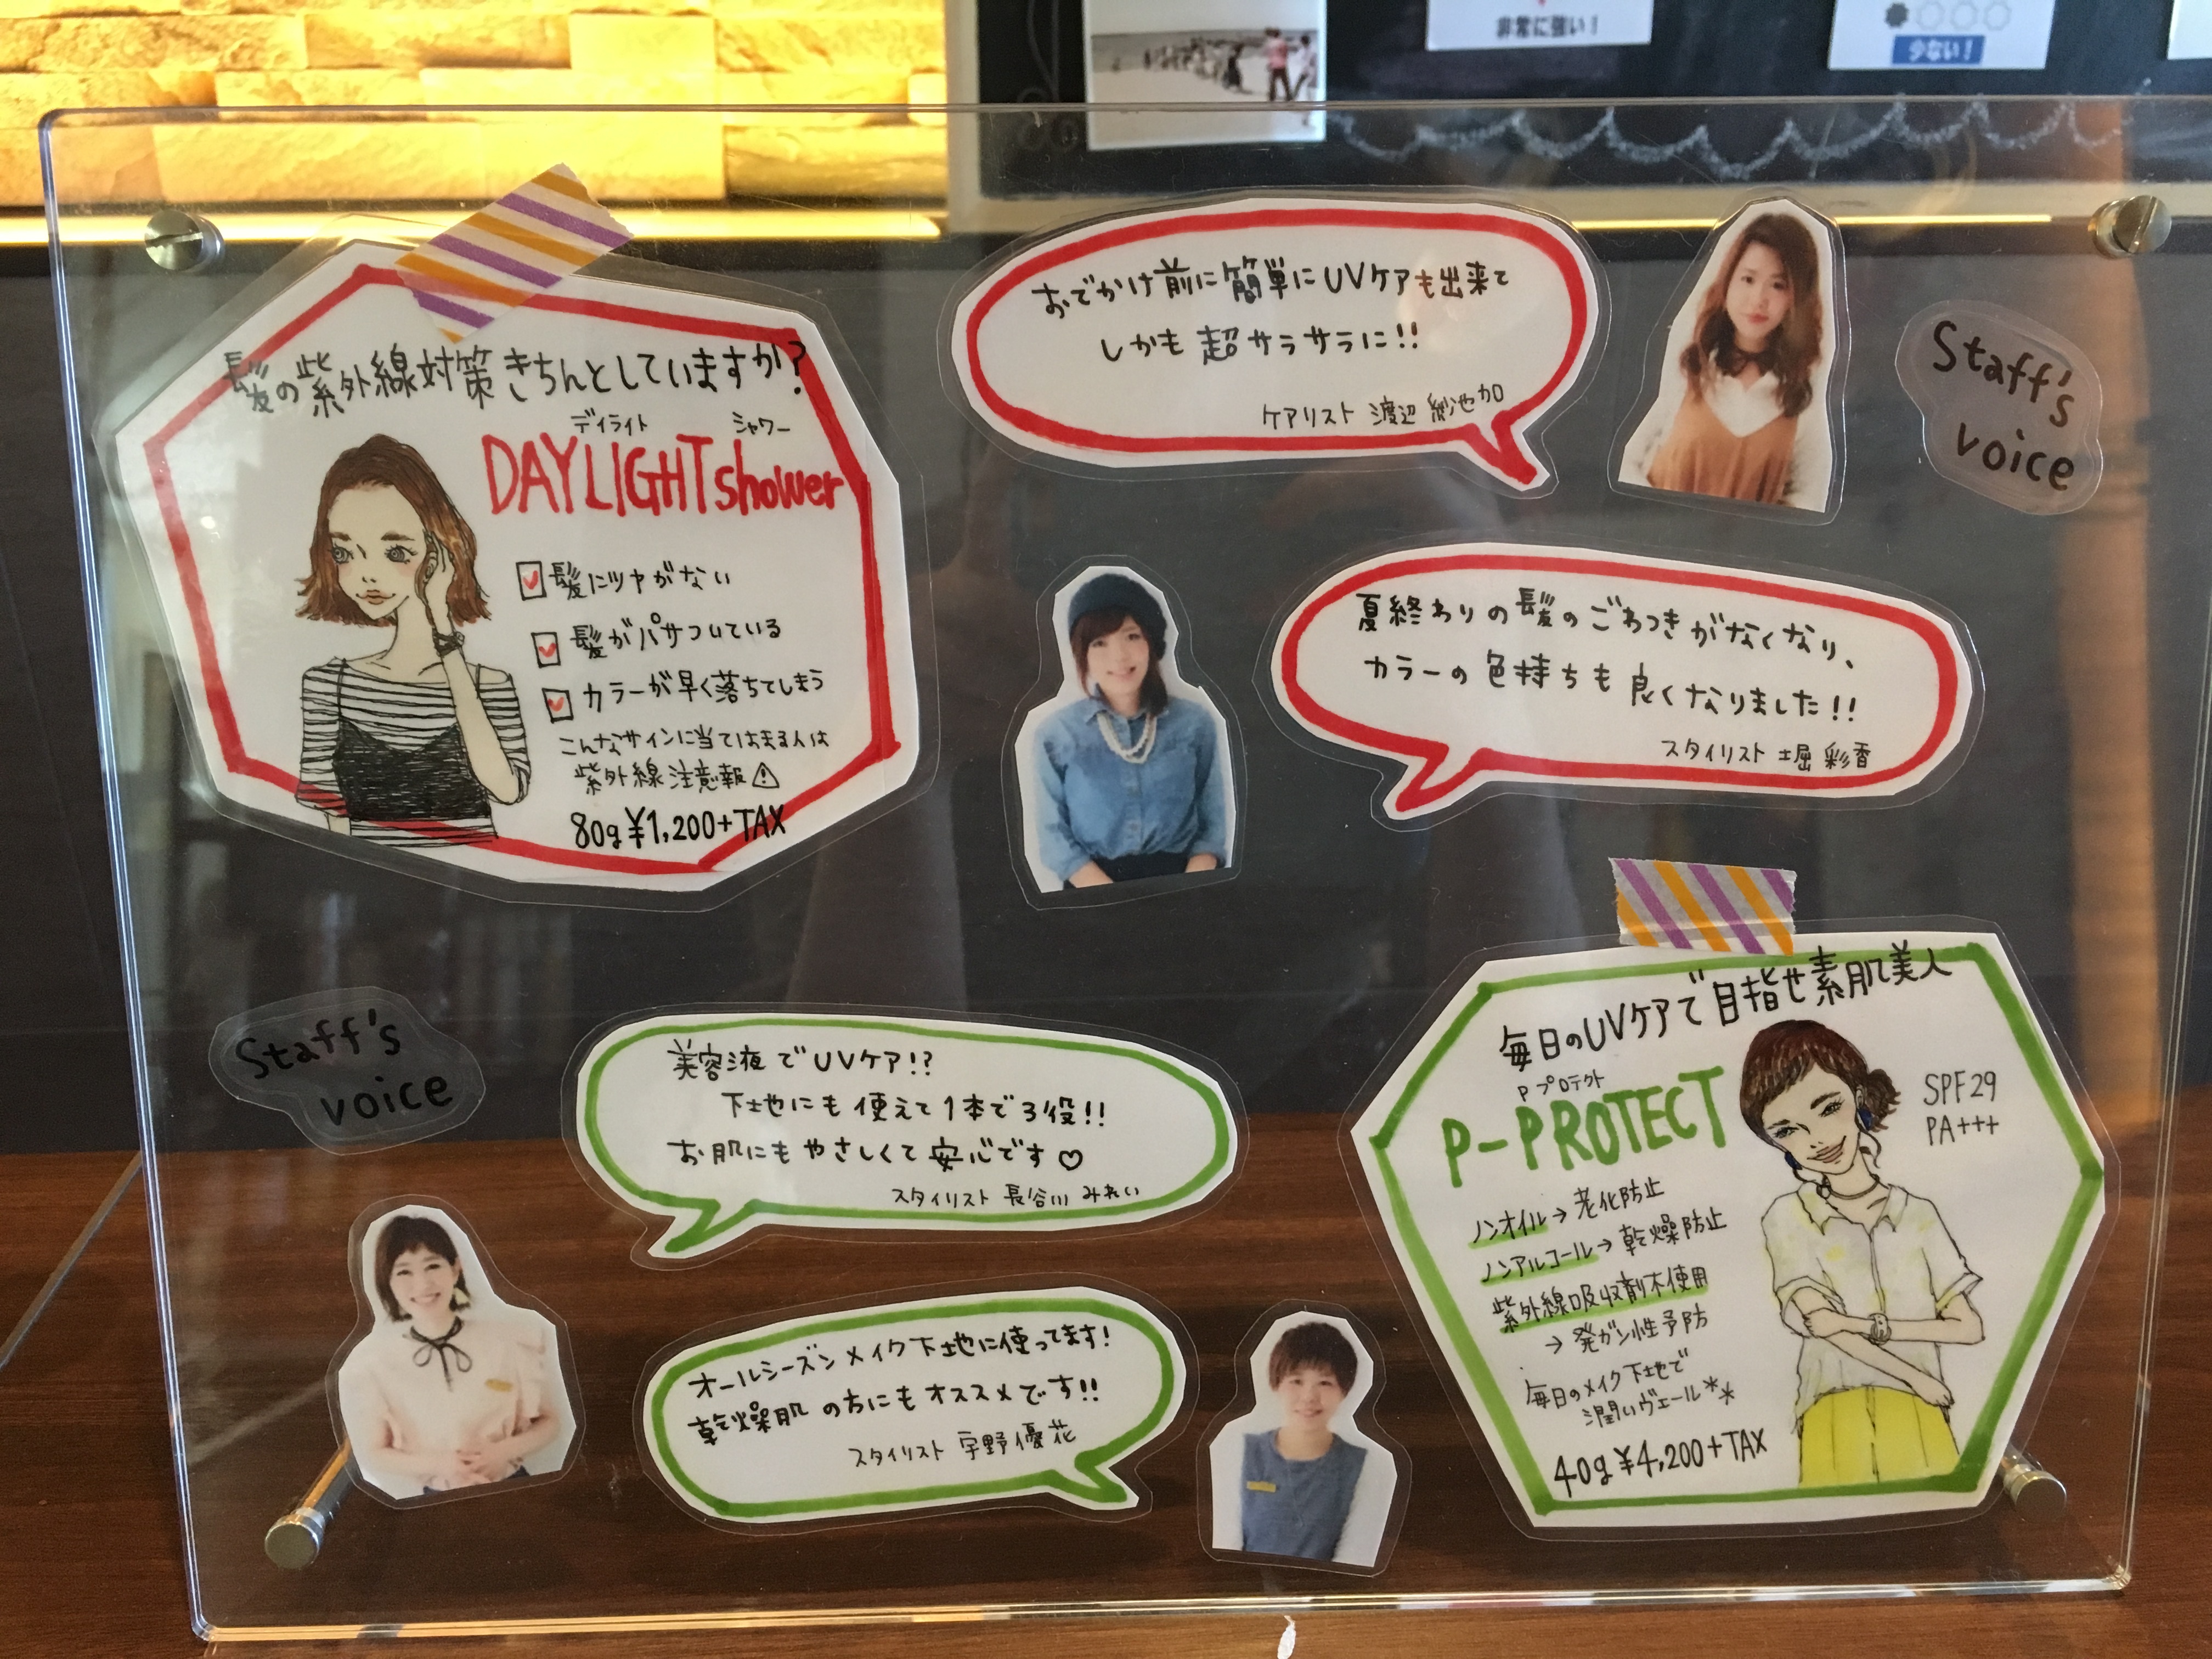 非常に強い！
少ない！
髪の紫外線対策きちんとしていますか?
デイライト シャワー
DAYLIGHT shower
髪にツヤがない
髪がパサついている
カラーが早く落ちてしまう
こんなサインに当てはまる人は
紫外線注意報
80g ¥1,200+TAX
おでかけ前に簡単にUVケアも出来て
しかも超サラサラに!!
ケアリスト 渡辺 紗也加
Staff's
voice
夏終わりの髪のごわつきがなくなり、
カラーの色持ちも良くなりました!!
スタイリスト 土堀 彩香
Staff's
voice
美容液でUVケア!?
下地にも使えて1本で3役!!
お肌にもやさしくて安心です♡
スタイリスト 長谷川 みれい
オールシーズンメイク下地に使ってます!
乾燥肌の方にもオススメです!!
スタイリスト 宇野 優花
毎日のUVケアで目指せ素肌美人
P プロテクト
P-PROTECT
SPF29
PA+++
ノンオイル→老化防止
ノンアルコール→乾燥防止
紫外線吸収剤不使用
→発ガン性予防
毎日のメイク下地で
潤いヴェール**
40g ¥4,200+TAX